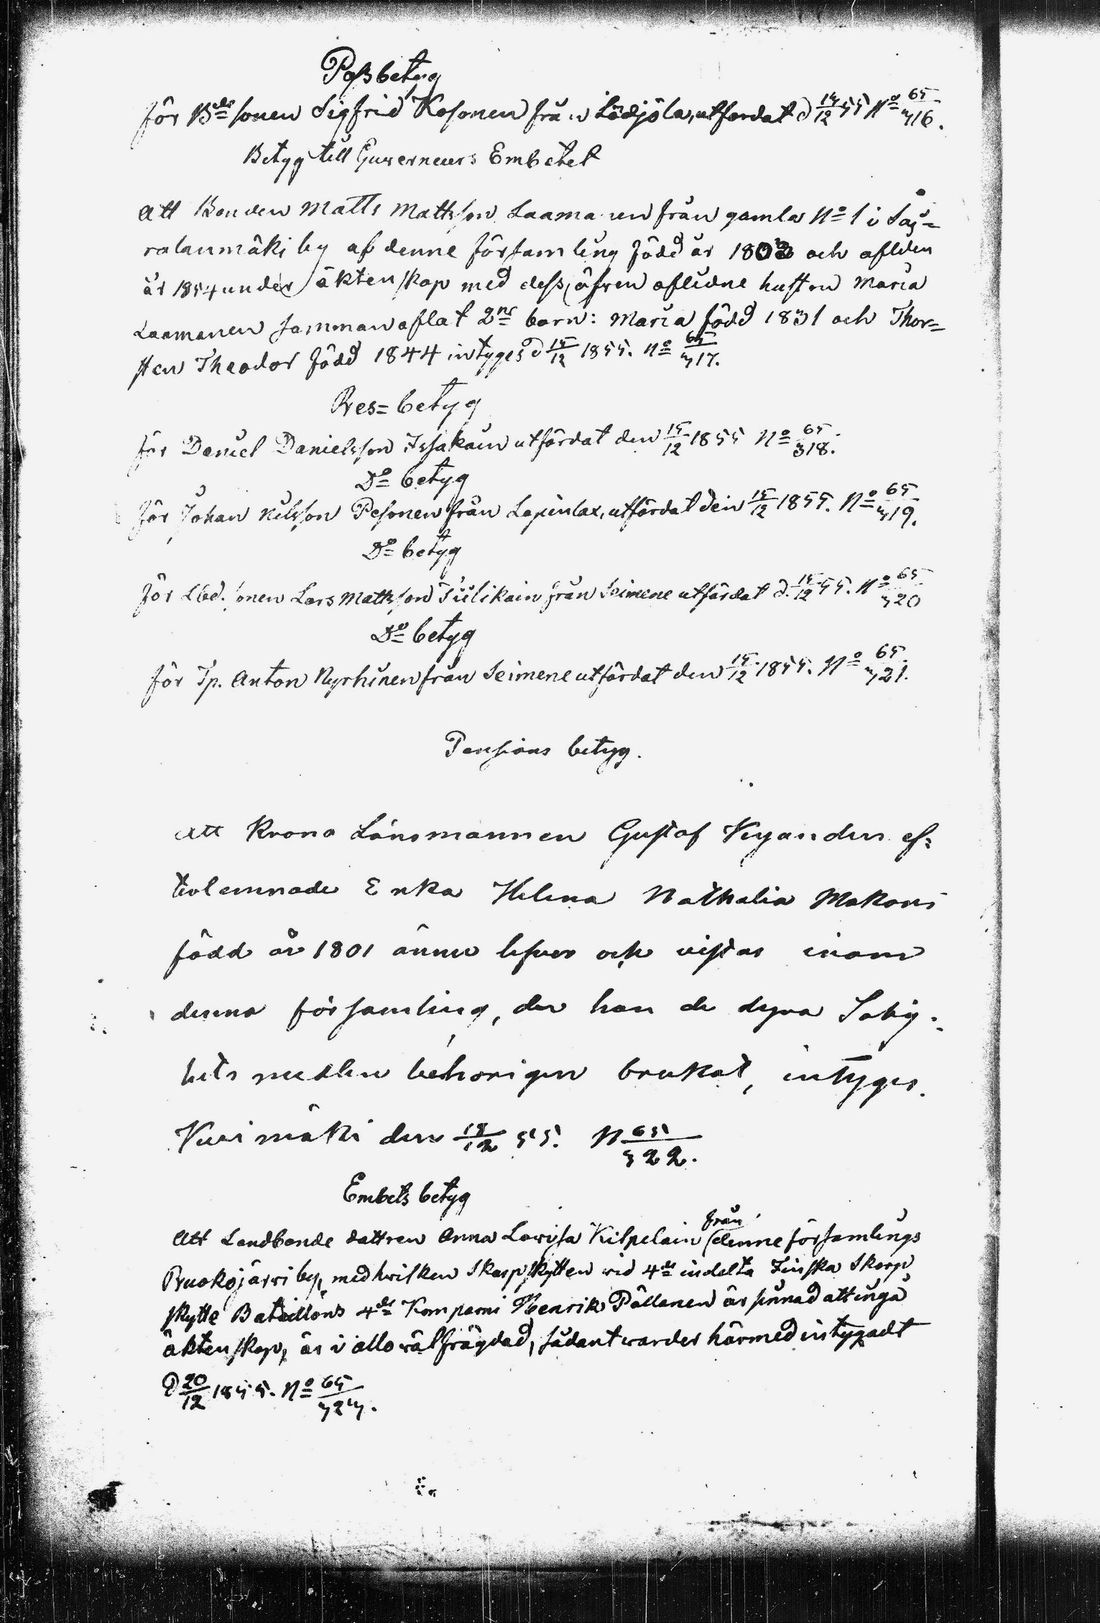 Passbetyg
för B<sup>de</sup> sonen Sigfrid Kosonen från Lödjöla, utfärdat d 14/12 55 No 65/516.
Betyg till Guverneurs Embetet
Att Bonden Matts Mattsson Laamanen från gamla No 1 i
ralanmäki by af denne församling född år 1803 och afliden
år 1854 under äktenskap med dess, äfven aflidne hustru Maria
Laamanen sammanaflat 2ne barn: Maria född 1831 och Thor=
sten Theodor född 1844 intyges d 15/12 1855. No 65/517.
Res=betyg
för Daniel Danielsson Issakain utfärdat den 15/12 1855 No 65/518.
Do betyg
för Johan Nilsson Pesonen från Lapinlax, utfärdat den 15/12 1855. No 65/519.
Do betyg
för Lbd. sonen Lars Mattsson Tiilikain från Seimene utfärdat d. 15/12 55. No 65/520
Do betyg
för Tp. Anton Nyrhinen från Seimene utfärdat den 15/12 1855. No 65/521.
Pensions betyg.
Att Krono Länsmannen Gustaf Kyanders ef=
terlemnade Enka Helena Nathalia
född år 1801 ännu lefver och vistas inom
denna församling, der hon de dyra Salig=
hets medlen behörigen brukat, intyges.
Kurimäki den 18/12 55. N 65/522.
Embets betyg
Att Landbonde dottren Anna Lovisa Kilpelain från denne församlings
Ruokojärvi by, med hvilken Skarpskytten vid 4de indelta Finska Skarp
skytte Bataillons 4de Kompani Henrik Pöllänen är sinnad att ingå
äktenskap, är i allo välfrägdad, sådant warder härmed intygadt
d 20/12 1855. No 65/525.